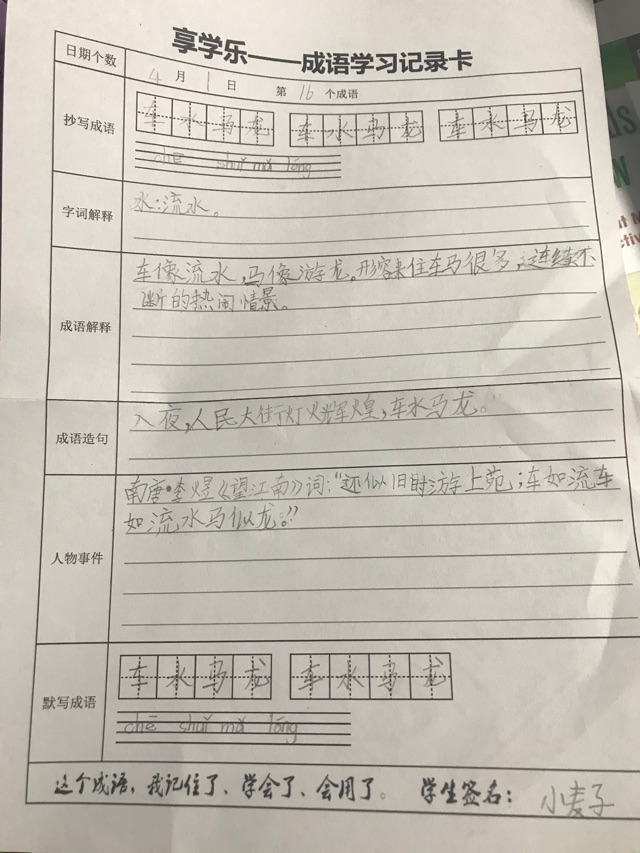 享学乐——成语学习记录卡
日期个数
4月1日 第16个成语
抄写成语
车水马龙 车水马龙 车水马龙
chē shuǐ mǎ lóng
字词解释
水:流水。
成语解释
车像流水,马像游龙。形容来往车马很多,连续不
断的热闹情景。
成语造句
入夜,人民大街灯火辉煌,车水马龙。
人物事件
南唐·李煜《望江南》词:“还似旧时游上苑;车如流车
如流水马似龙。”
默写成语
车水马龙 车水马龙
chē shuǐ mǎ lóng
这个成语,我记住了、学会了、会用了。 学生签名: 小麦子